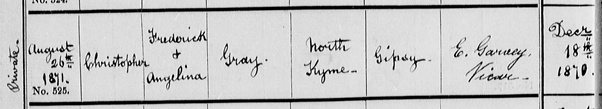 No. 524.
Private.
August
26th
1871.
No. 525.
Christopher
Frederick
+
Angelina
Gray.
North
Kyme.
Gipsy.
E. Garvey
Vicar
Decr
18th
1870.